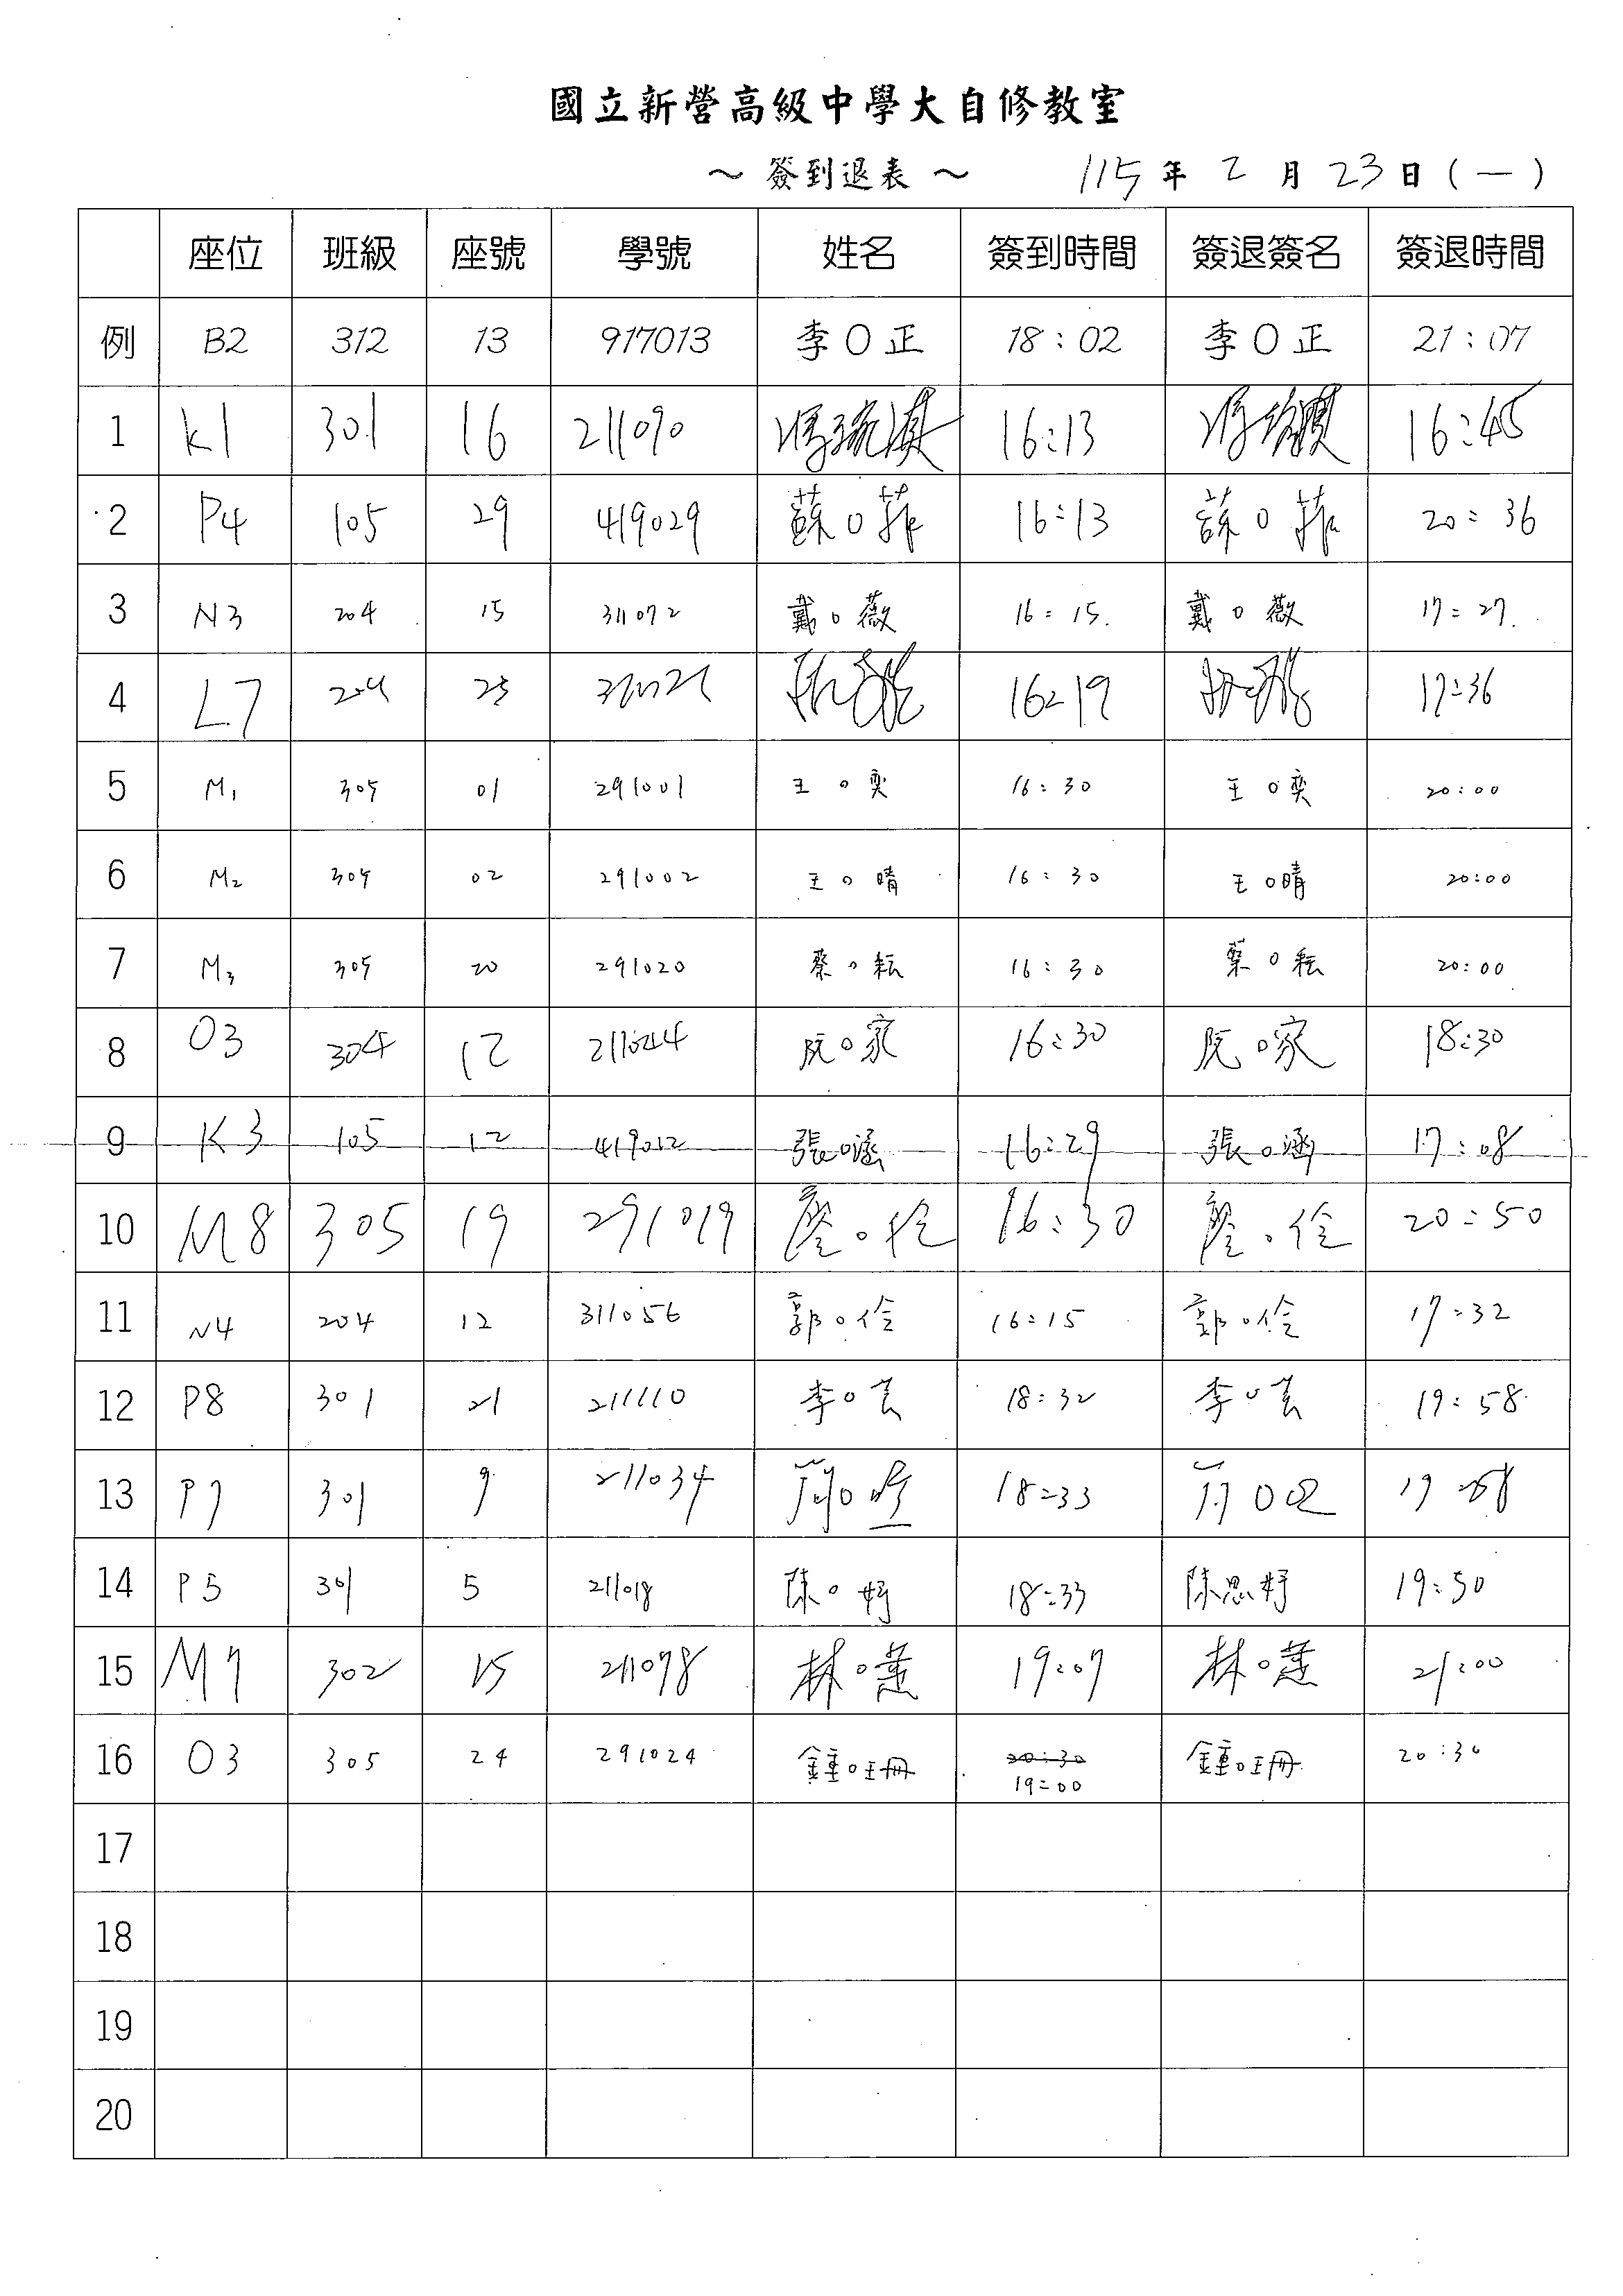 國立新營高級中學大自修教室
~ 簽到退表 ~ 115 年 2 月 23 日 ( 一 )
座位 班級 座號 學號 姓名 簽到時間 簽退簽名 簽退時間
例 B2 312 13 917013 李O正 18:02 李O正 21:07
1 K1 301 16 211090 16:13 16:45
2 P4 105 29 419029 蘇O菲 16:13 蘇O菲 20:36
3 N3 204 15 311072 戴O薇 16:15 戴O薇 17:27
4 L7 204 16:19 17:36
5 M1 305 01 291001 王O奕 16:30 王O奕 20:00
6 M2 305 02 291002 王O晴 16:30 王O晴 20:00
7 M3 305 20 291020 蔡O耘 16:30 葉O耘 20:00
8 O3 304 12 211044 阮O家 16:30 阮O家 18:30
9 K3 105 12 419012 張O涵 16:29 張O涵 17:08
10 M8 305 19 291019 16:30 20:50
11 N4 204 12 311056 郭O伶 16:15 郭O伶 17:32
12 P8 301 21 211110 李O 18:32 李O 19:58
13 P7 301 9 211034 18:33 19:58
14 P5 301 5 211018 陳O妤 18:33 陳思妤 19:50
15 M7 302 15 211078 林O 19:07 林O 21:00
16 O3 305 24 291024 鍾O珊 20:30 鍾O珊 20:30
19:00
17
18
19
20